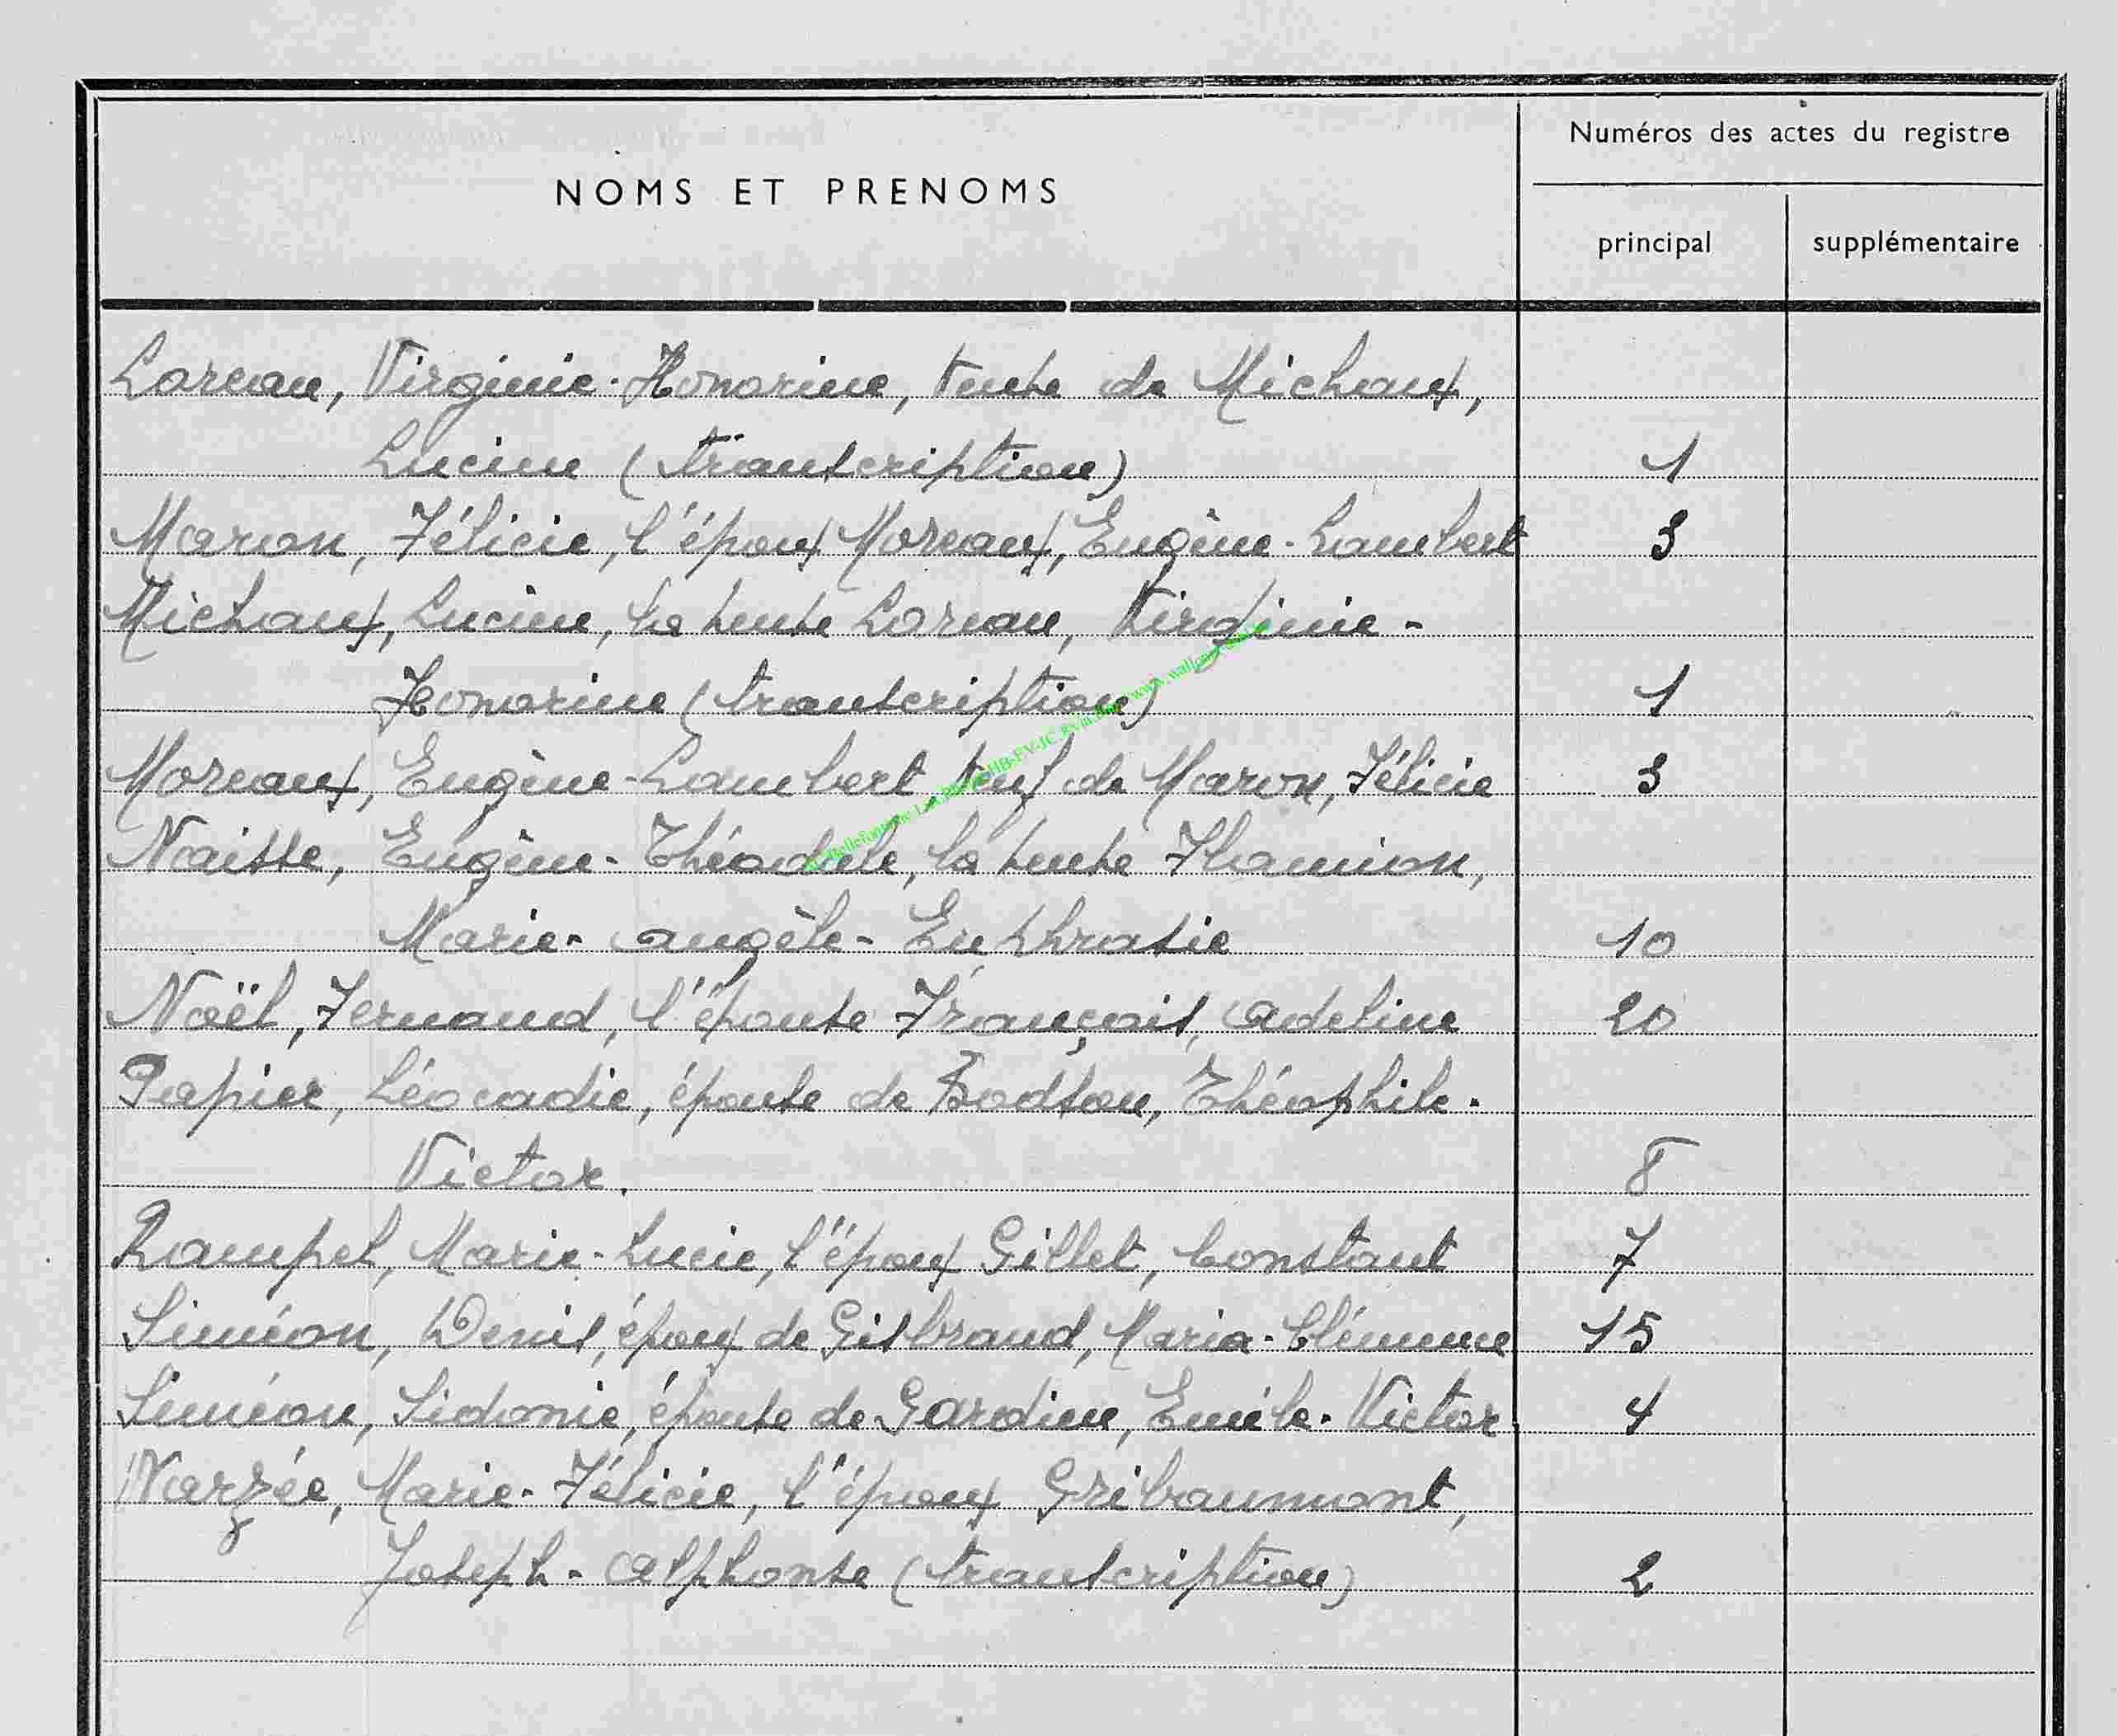 Numéros des actes du registre
NOMS ET PRENOMS
principal supplémentaire
Loreau, Virginie-Honorine, veuve de Michaux,
Lucien (transcription) 1
Maron, Félicie, l'époux Moreaux, Eugène-Lambert 3
Michaux, Lucien, la veuve Loreau, Virginie-
Honorine (transcription) 1
Moreaux, Eugène-Lambert veuf de Maron, Félicie 3
Naisse, Eugène-Théodule, la veuve Flamion,
Marie-Angèle-Euphrasie 10
Noël, Fernand, l'épouse François, Adeline 20
Papier, Léocadie, épouse de Bodson, Théophile-
Victor. 8
Rampel, Marie-Lucie, l'époux Gillet, Constant 7
Siméon, Denis, époux de Gisbrand, Maria-Clémence 15
Siméon, Sidonie, épouse de Gardien, Emile-Victor 4
Warzée, Marie-Félicie, l'époux Gribaumont,
Joseph-Alphonse (transcription) 2